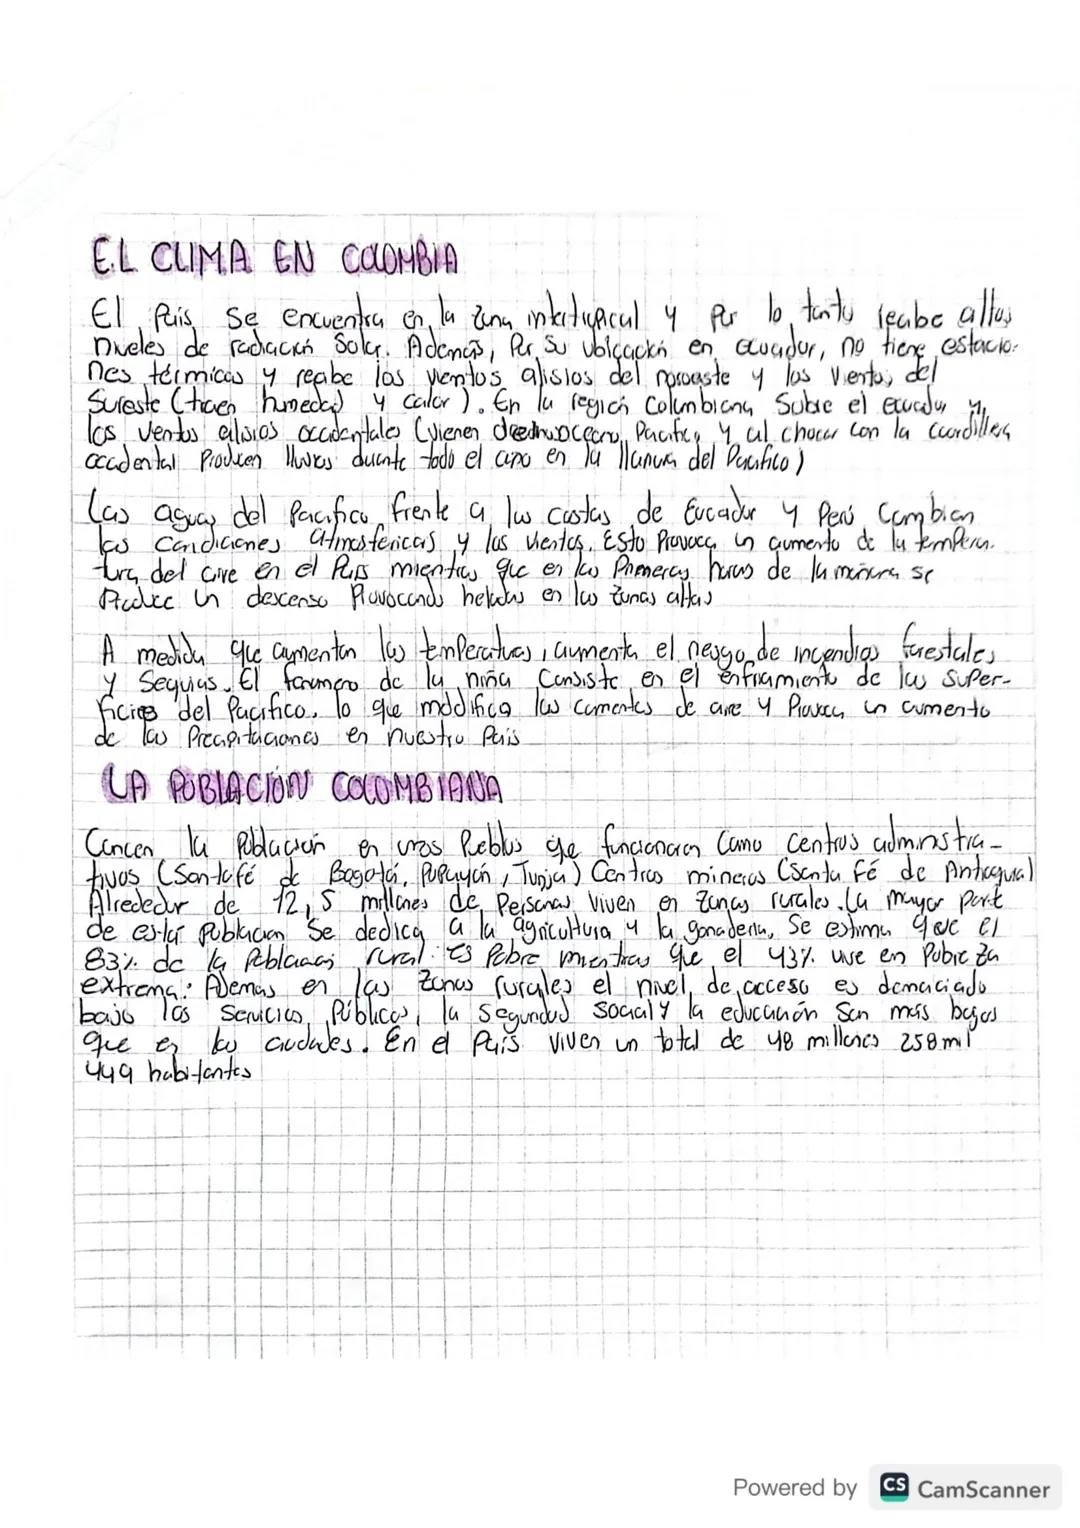 EL CLIMA EN COLOMBIA
El Pais se encuentra en la zona intertropical y por lo tanto recibe altos
niveles de radiación Solar. Además, Por Su ubicación en ecuador, no tiene estacio-
nes térmicas y recibe los vientos alisios del noroeste y los vientos del
Sureste (traen humedad y calor). En la región Colombiana Sube el ecuador y
los ventos alisios occidentales (vienen Oceano Pacifico y al chocar con la cordillera
occidental Producen lluvias durante todo el año en la llanura del Pacifico)
Las aguas del Pacifico frente a las costas de Ecuador y Perú Cambian
las Condiciones atmosfericas y los vientos. Esto Provoca un aumento de la tempera-
tura del aire en el Pais mientras que en las Primeras horas de la mañana se
Produce un descenso Provocando heladas en las zonas altas
A medida que aumentan las temperaturas, aumenta el riesgo de incendios forestales
y Sequias. El fenomeno de la niña Consiste en el enfriamiento de las Super-
ficies del Pacifico, lo que modifica las corrientes de aire y Provoca un aumento
de las Precipitaciones en nuestro Pais
LA POBLACIÓN COLOMBIANA
la Población en unos Pueblos que funcionaron Como centros administra-
tivos (Santafé de Bogotá, Popayán, Tunja) Centros mineros (Santa Fé de Antioquia)
Alrededor de 12,5 millones de Personas viven en zonas rurales. La mayor part
de esta Poblacion Se dedica a la agricultura y la ganaderia, Se estima que El
83% de la Poblacion rural. Es Pobre mientras que el 43% vive en Pobreza
extrema. Ademas en las zonas rurales el nivel de acceso es demaciado
bajo los Servicios Públicos, la Seguridad Social y la educación Son más bajos
que en las ciudades. En el Pais viven un total de 48 millones 258 mil
449 habitantes
Powered by CS CamScanner